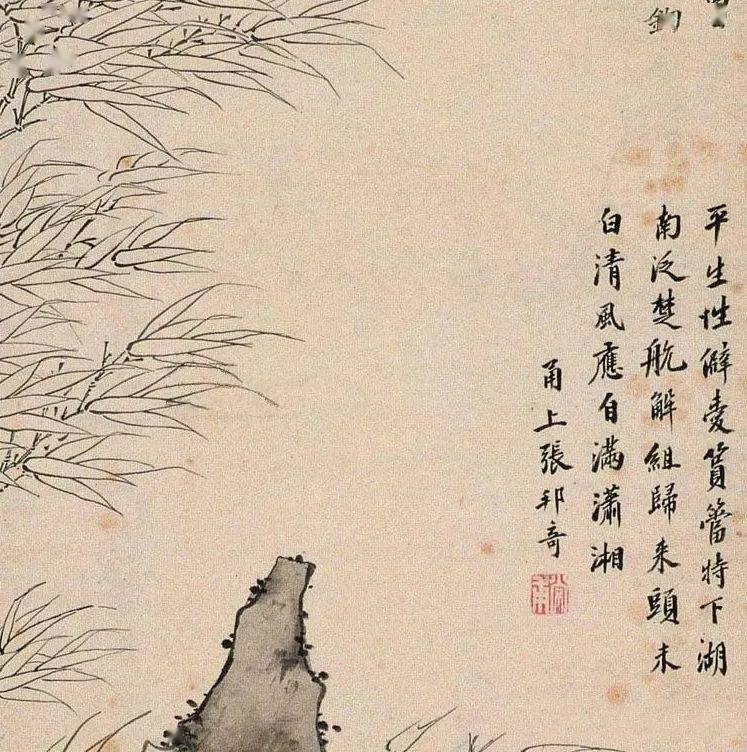 平生性僻愛篔簹特下湖
南泛楚航解組歸来頭未
白清風應自滿瀟湘
甬上張邦奇